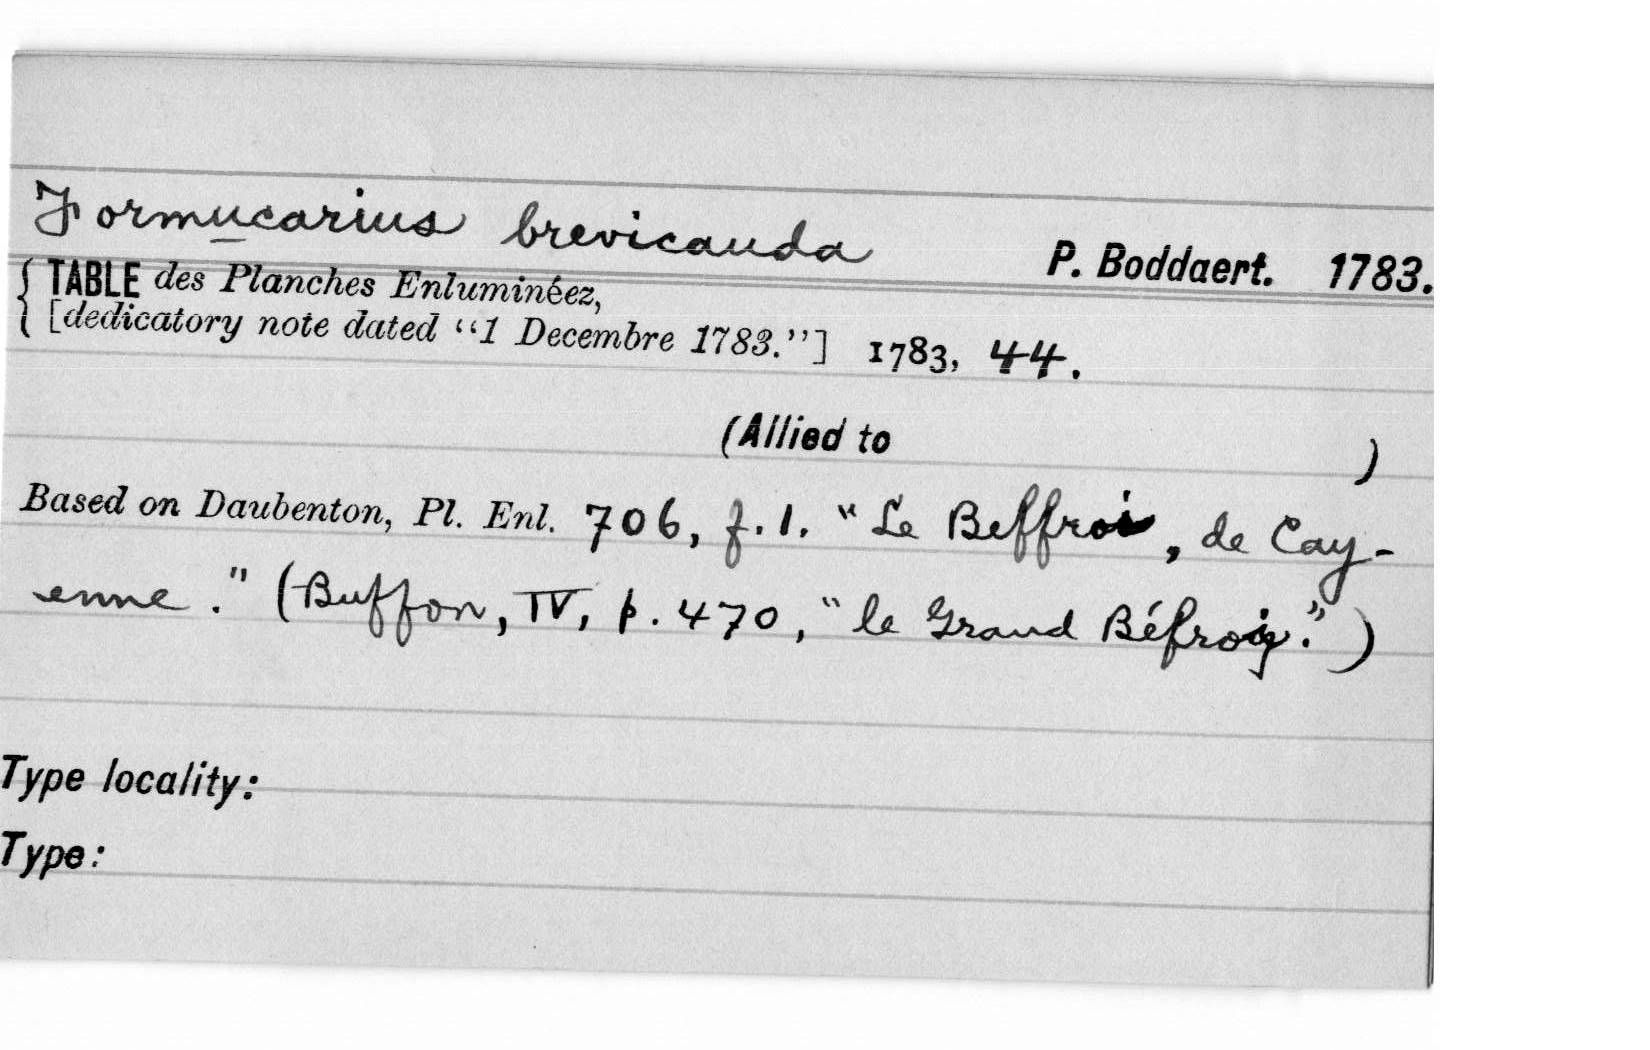 Formucarius brevicauda P. Boddaert. 1783.
{ TABLE des Planches Enluminéez,
[dedicatory note dated “1 Decembre 1783.”] 1783, 44.
(Allied to )
Based on Daubenton, Pl. Enl. 706, f. 1. “Le Beffroi, de Cay-
enne." (Buffon, IV, p. 470, “le Grand Béfroy.”)
Type locality:
Type: